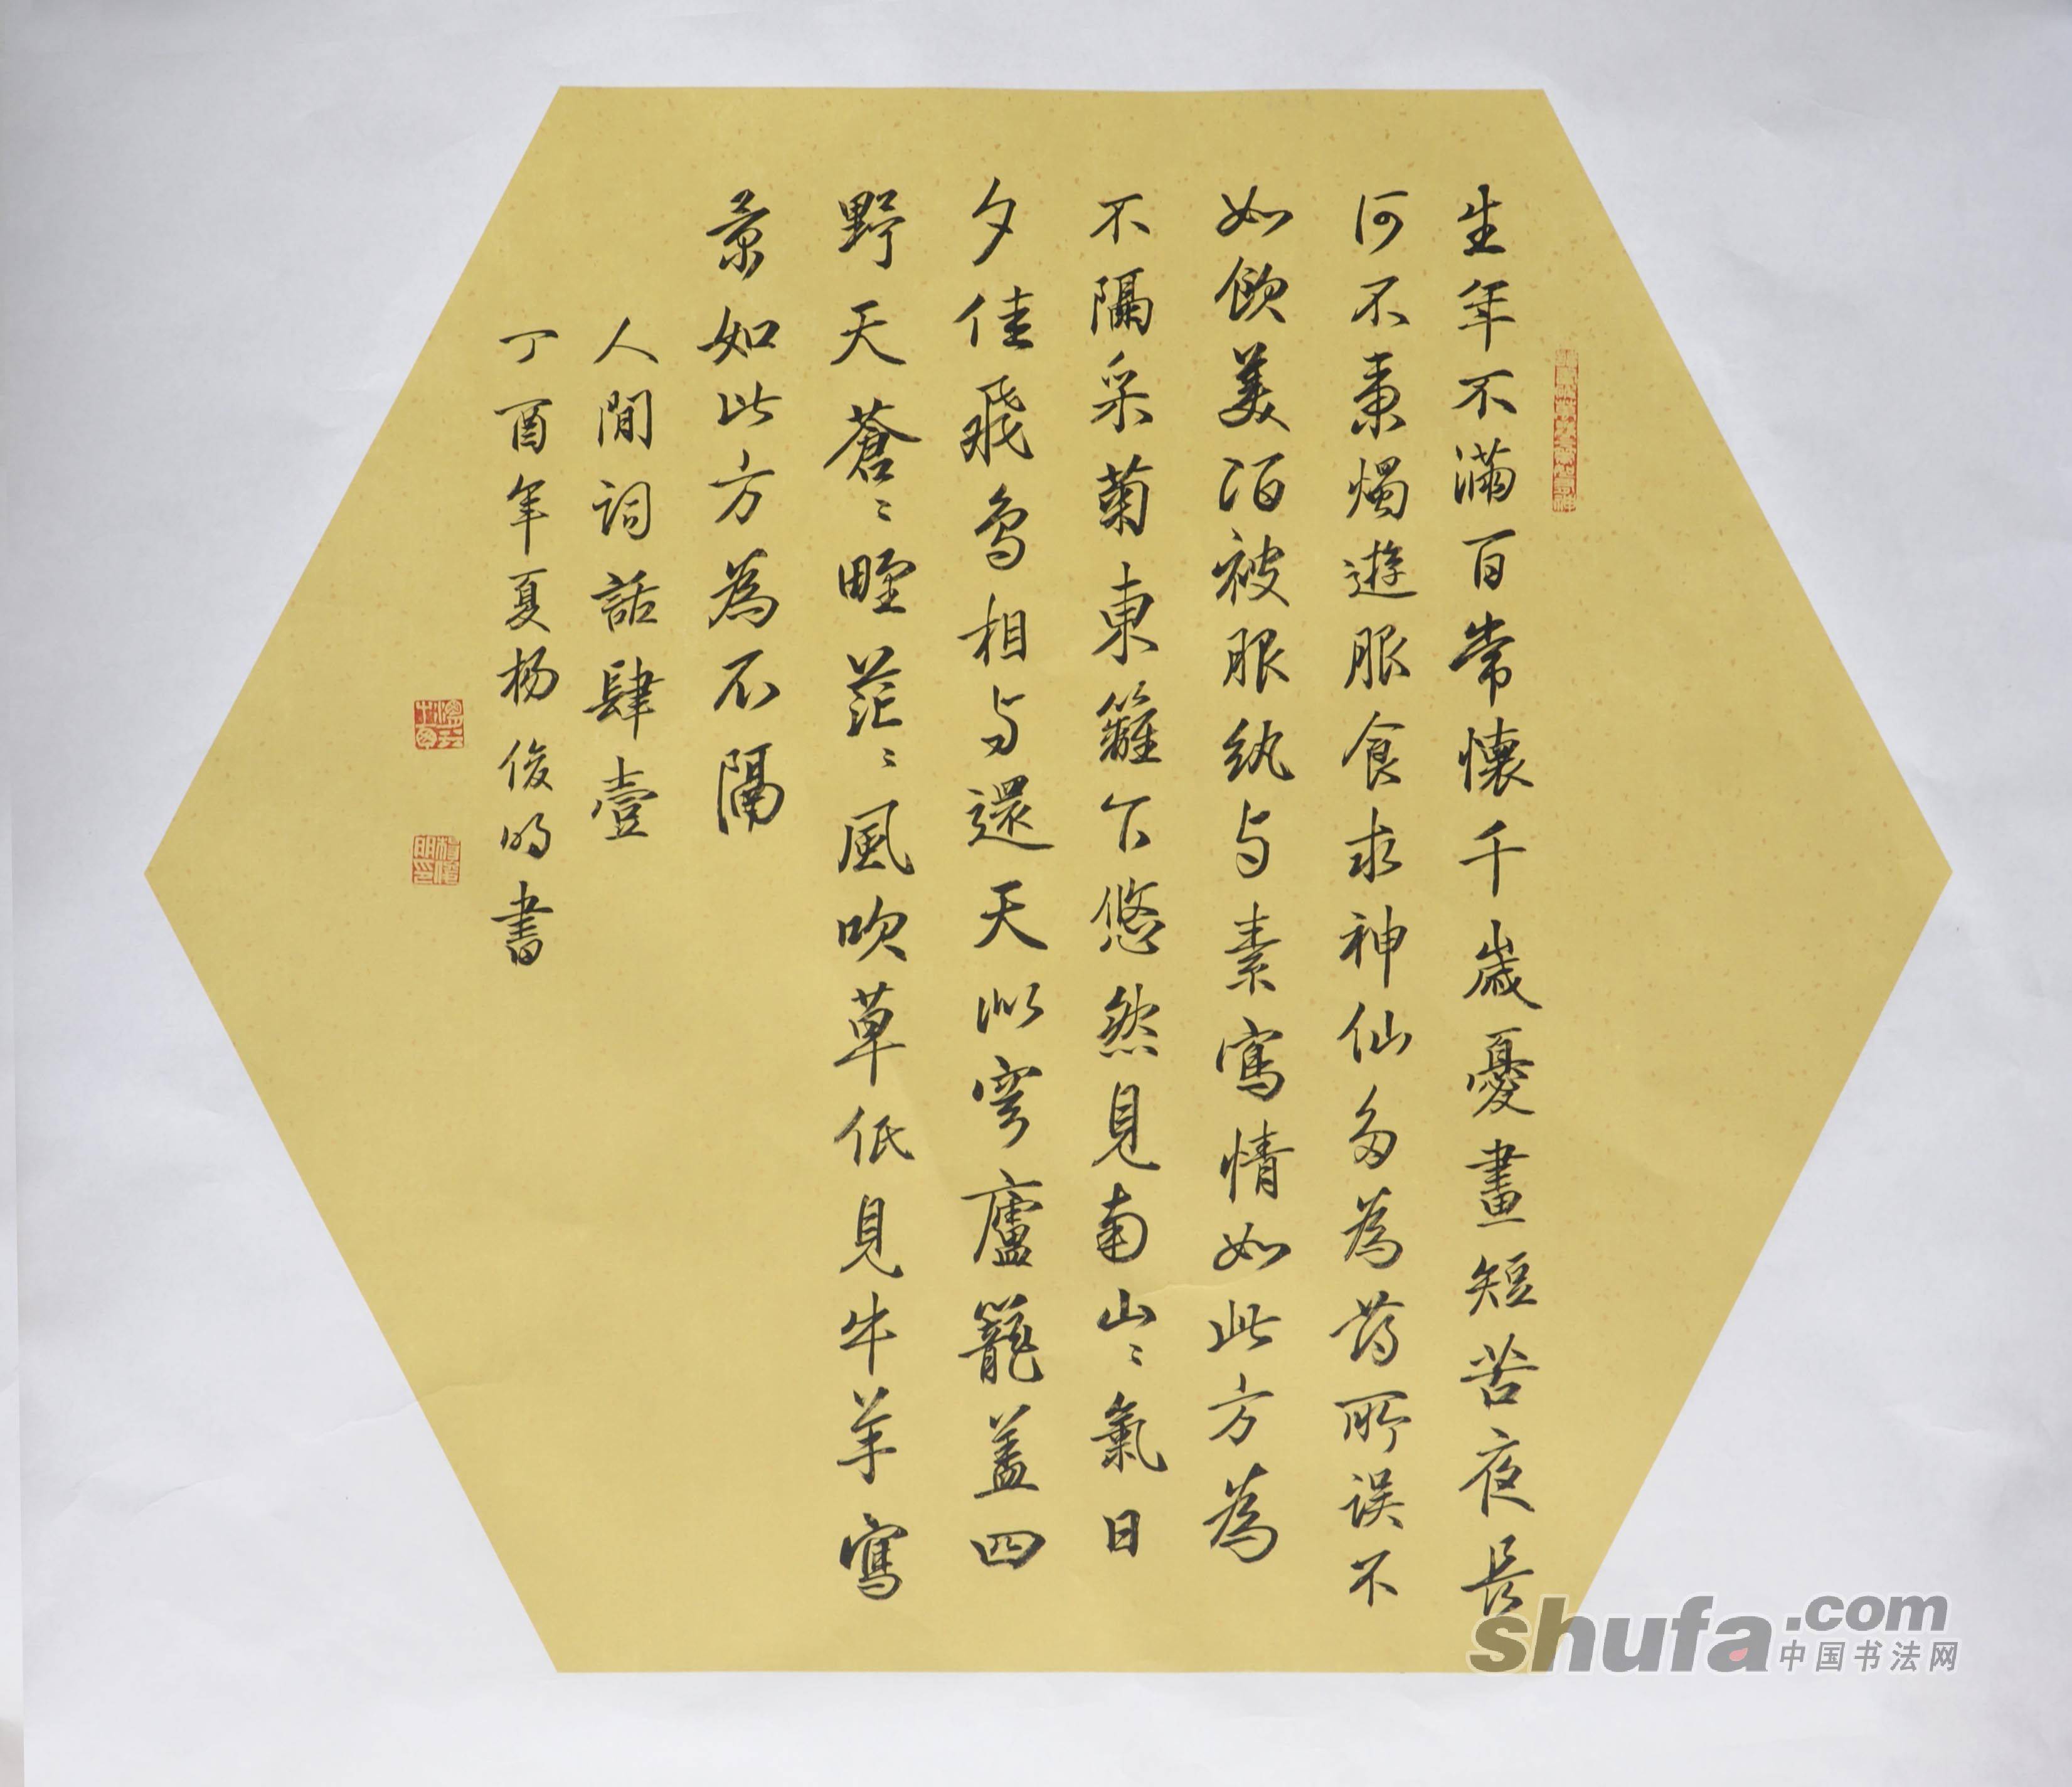 生年不滿百常懷千歲憂晝短苦夜長
何不秉燭遊服食求神仙多為药所误不
如飲美酒被服紈与素寫情如此方為
不隔采菊東籬下悠然見南山山氣日
夕佳飛鳥相与還天似穹廬籠盖四
野天蒼〻野茫〻風吹草低見牛羊寫
景如此方為不隔
人間詞話肆壹
丁酉年夏杨俊明書
shufa.com
中国书法网